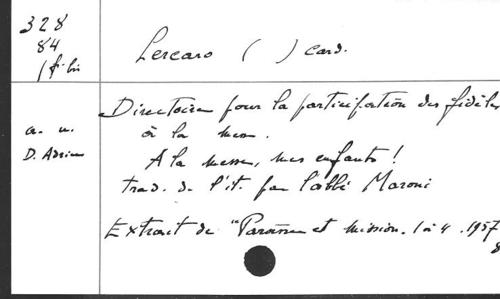 328
84
1 f. bis
Lercaro ( ) Card.
Directoire pour la participation des fidèles
à la messe.
a. n.
D. Adrien
A la messe, mes enfants !
trad. de l'it. par l'abbé Maroni
Extrait de "Paroisse et Mission. 1 à 4 . 1957
8